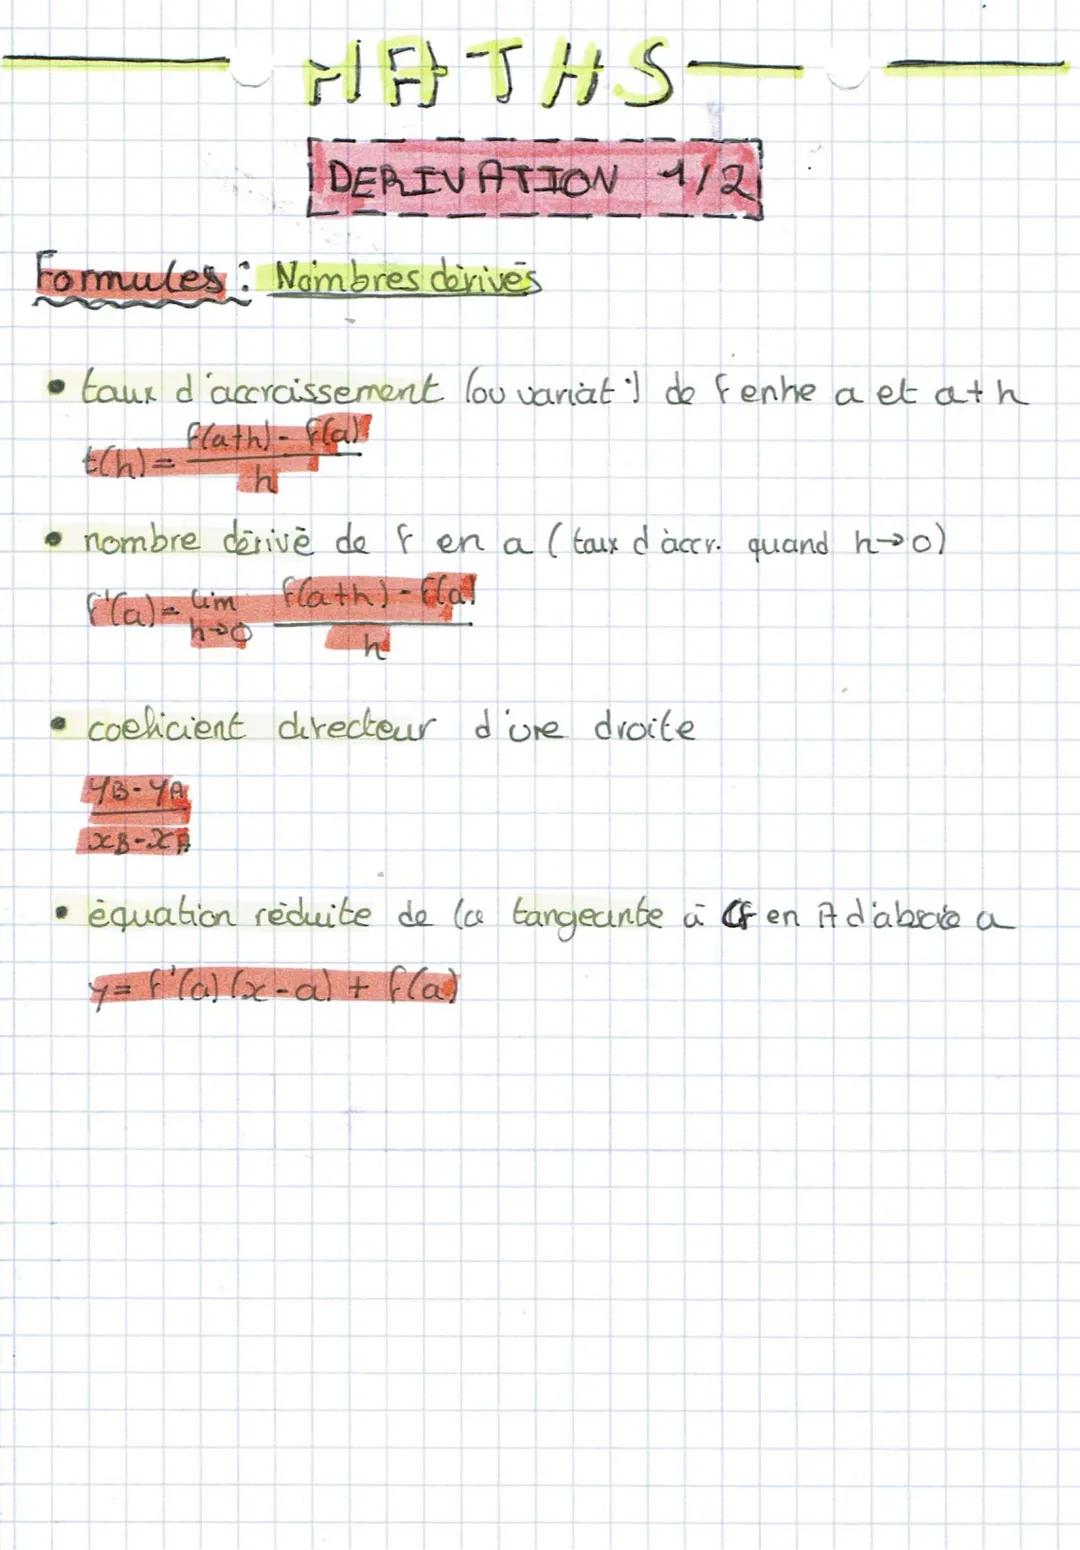 MATHS
DERIVATION 1/2
Formules : Nombres dérivés
• taux d'accroissement (ou variat°) de f entre a et a+h
t(h) = f(a+h) - f(a)
h
• nombre dérivé de f en a (taux d'accr. quand h→0)
f'(a) = lim f(a+h) - f(a)
h→0 h
• coeficient directeur d'une droite
yB - yA
xB - xA
• équation réduite de la tangeante à Cf en A d'abscisse a
y = f'(a) (x-a) + f(a)